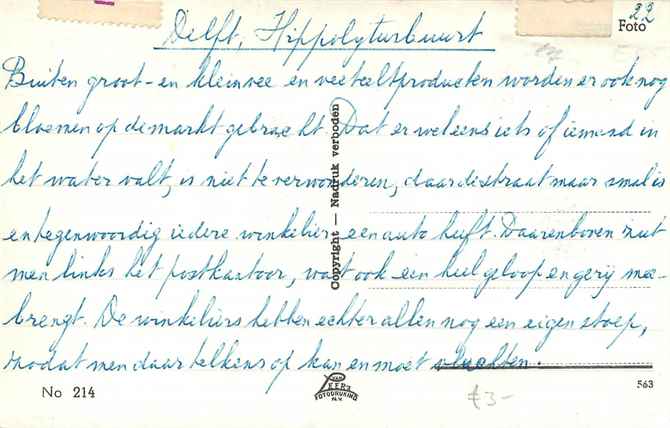 22
Foto
Delft, Hippolytusbuurt
Buiten groot- en kleinvee en veeteeltproducten worden er ook nog
bloemen op de markt gebracht. Dat er wel eens iets of iemand in
het water valt, is niet te verwonderen, daar de straat maar smal is
en tegenwoordig iedere winkelier een auto heeft. Daarenboven ziet
men links het postkantoor, wat ook een heel geloop en gerij mee-
brengt. De winkeliers hebben echter allen nog een eigen stoep,
zodat men daar telkens op kan en moet vluchten.
Copyright — Nadruk verboden
No 214
VAN LEER'S
FOTODRUKIND.
N.V.
£3-
563